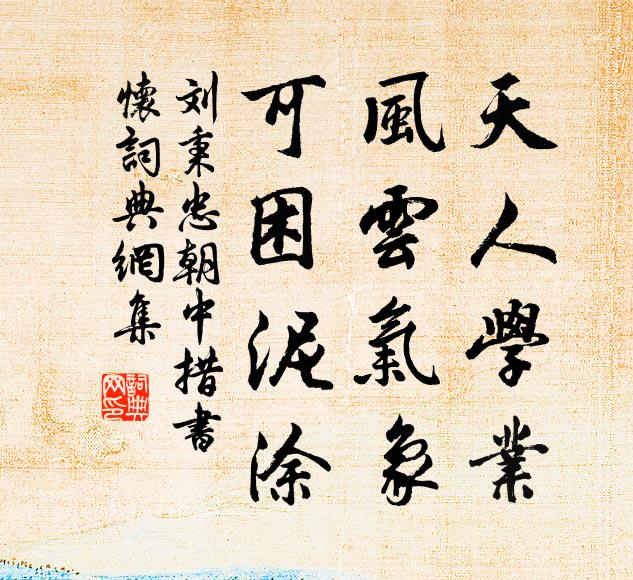 天人學業
風雲氣象
可困泥涂
刘秉忠朝中措書
懷詞典網集
詞典网印